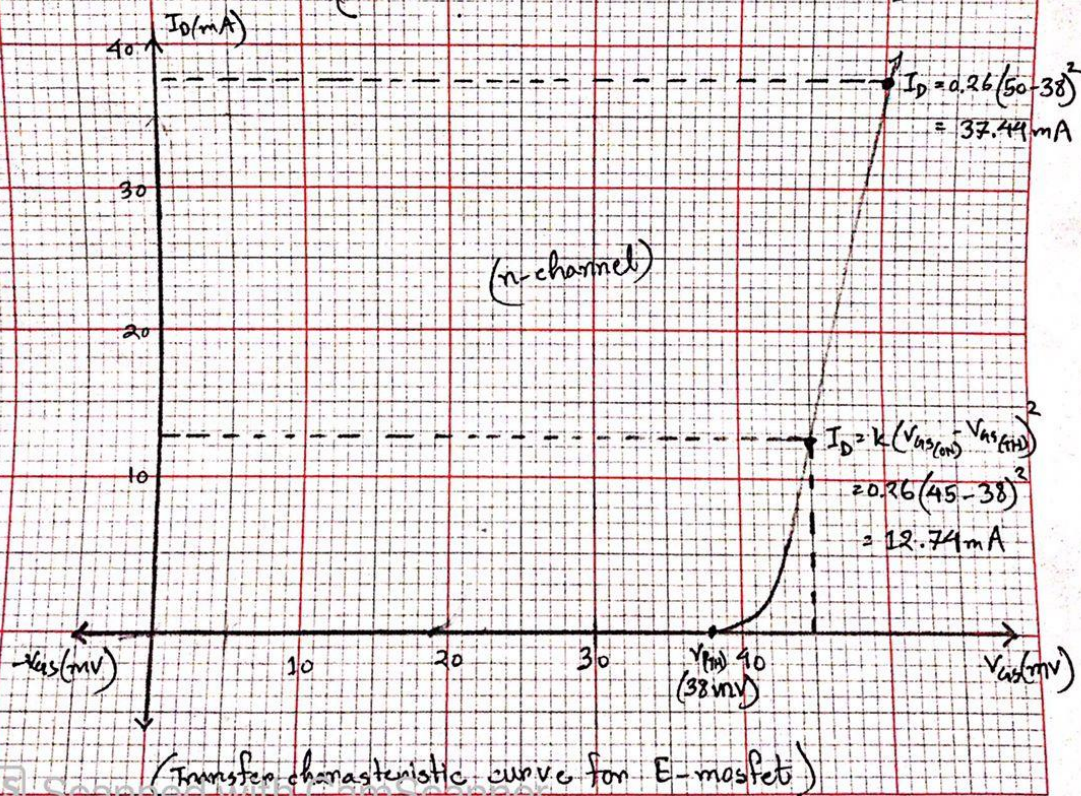 I_D(mA)
40
I_D = 0.26(50-38)²
= 37.44mA
30
(n-channel)
20
I_D = k(V_GS(ON) - V_GS(TH))²
10
= 0.26(45-38)²
= 12.74mA
-V_GS(mV)
10
20
30
V_(TH)
40
V_GS(mV)
(38mV)
(Transfer charasteristic curve for E-mosfet)
Scanned with CamScanner